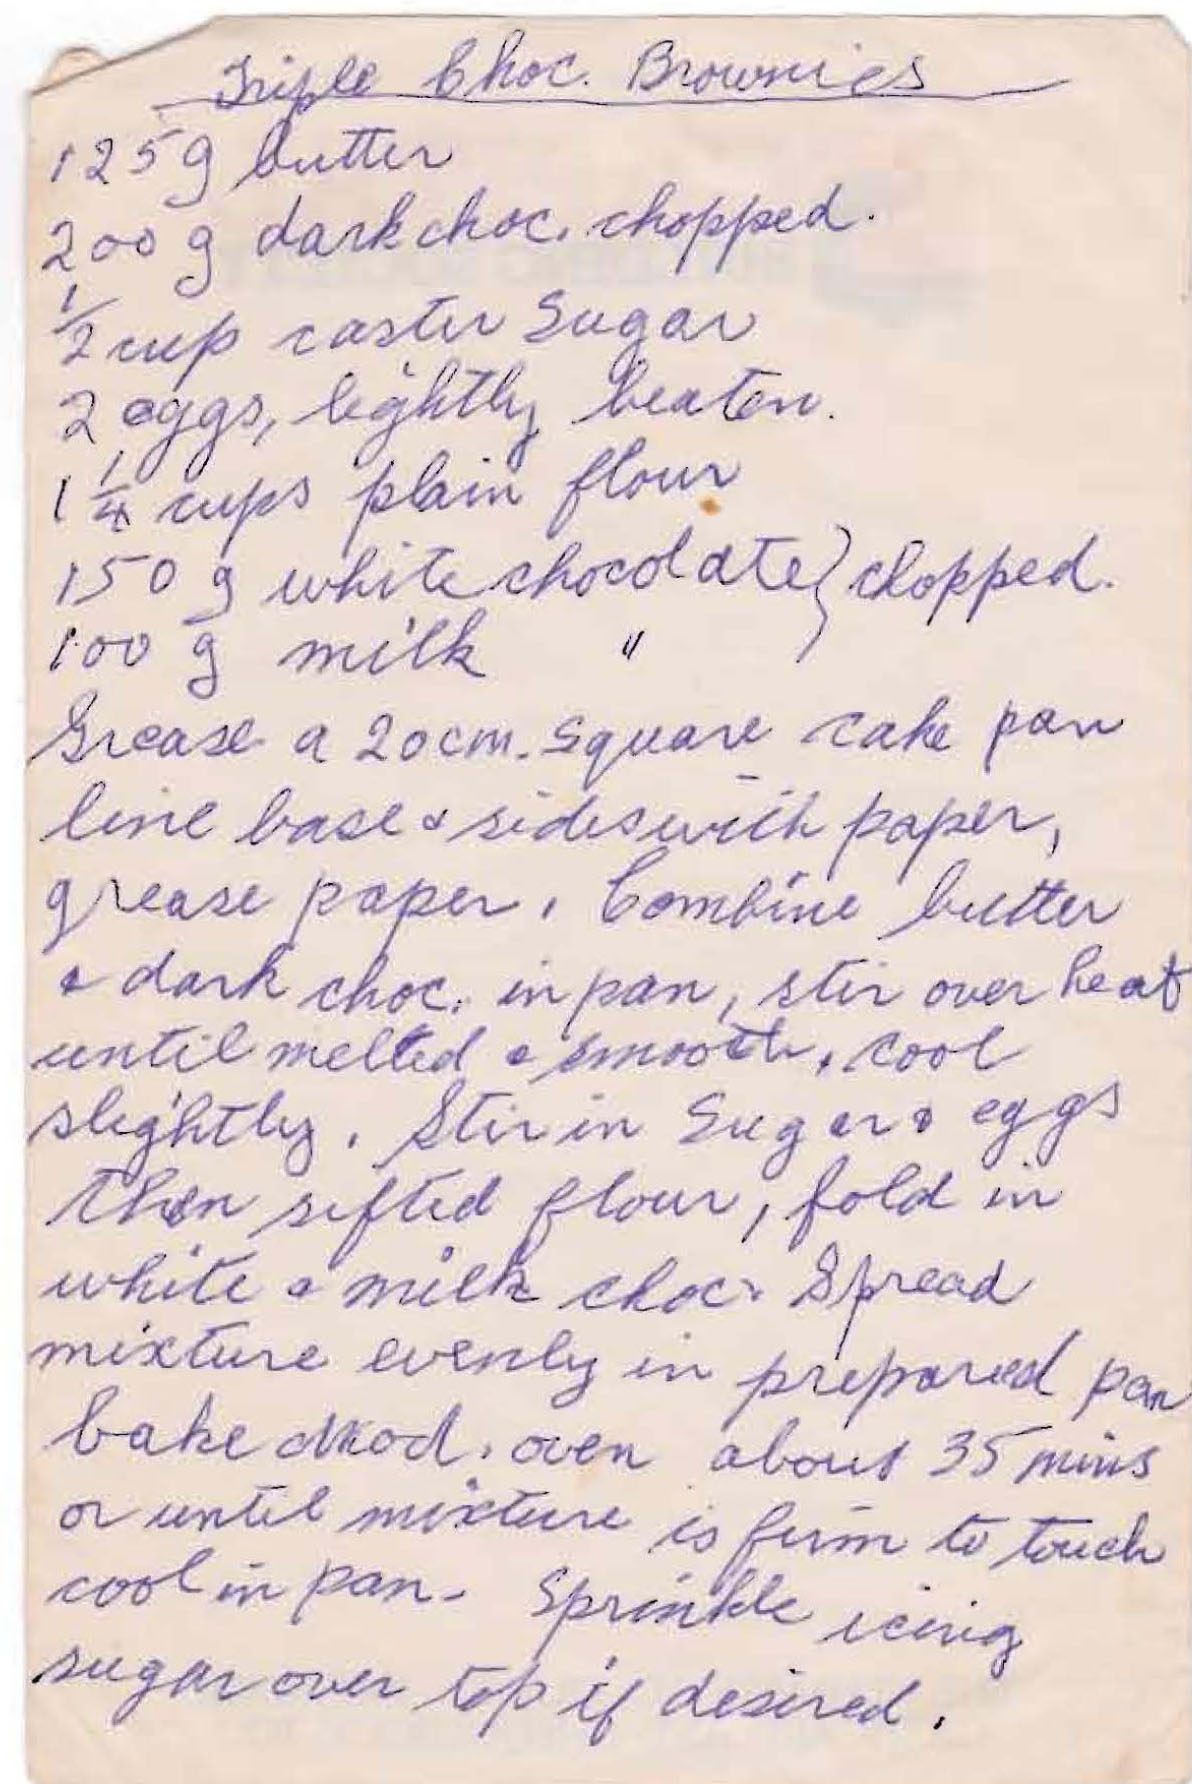 Triple Choc. Brownies
125g butter
200 g dark choc. chopped.
1/2 cup caster Sugar
2 eggs, lightly beaten.
1 1/4 cups plain flour
150 g white chocolate } chopped.
100 g milk "
Grease a 20cm. Square cake pan
line base & sides with paper,
grease paper. Combine butter
& dark choc. in pan, stir over heat
until melted & smooth. cool
slightly. Stir in Sugar & eggs
then sifted flour, fold in
white & milk choc. Spread
mixture evenly in prepared pan
bake mod. oven about 35 mins
or until mixture is firm to touch
cool in pan. Sprinkle icing
sugar over top if desired.